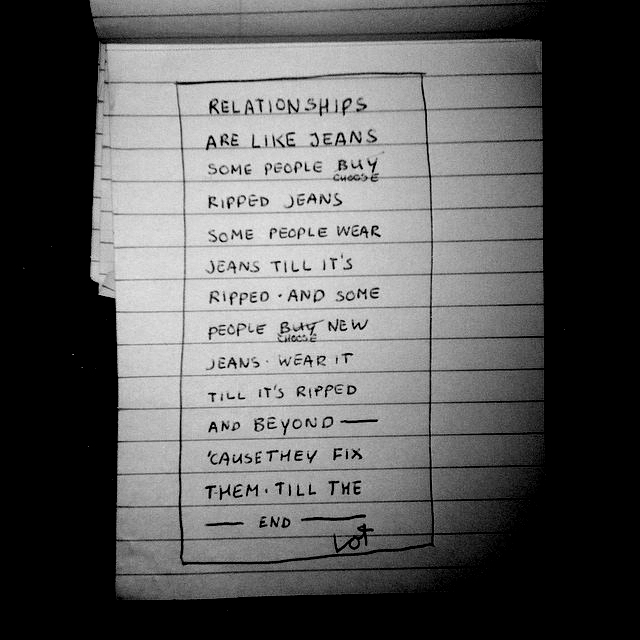 RELATIONSHIPS
ARE LIKE JEANS
SOME PEOPLE BUY
CHOOSE
RIPPED JEANS
SOME PEOPLE WEAR
JEANS TILL IT'S
RIPPED · AND SOME
PEOPLE BUY NEW
CHOOSE
JEANS · WEAR IT
TILL IT'S RIPPED
AND BEYOND —
'CAUSE THEY FIX
THEM · TILL THE
— END —